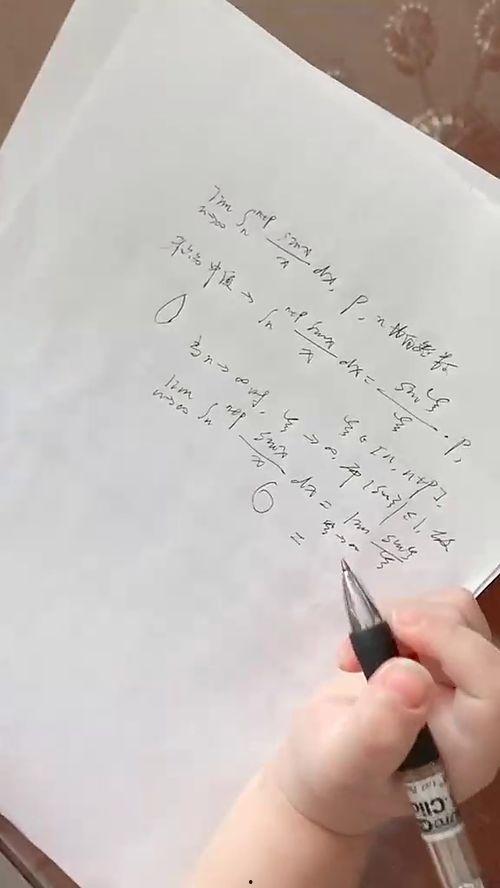 lim n→∞ ∫ₙⁿ⁺ᵖ sinx/x dx, P, n 为自然数
积分中值 → ∫ₙⁿ⁺ᵖ sinx/x dx = sinξ/ξ · P,
ξ∈[n, n+p],
当n→∞时, ξ→∞, 而|sinξ|≤1, 故
lim n→∞ ∫ₙⁿ⁺ᵖ sinx/x dx = lim ξ→∞ sinξ/ξ
=
Clic